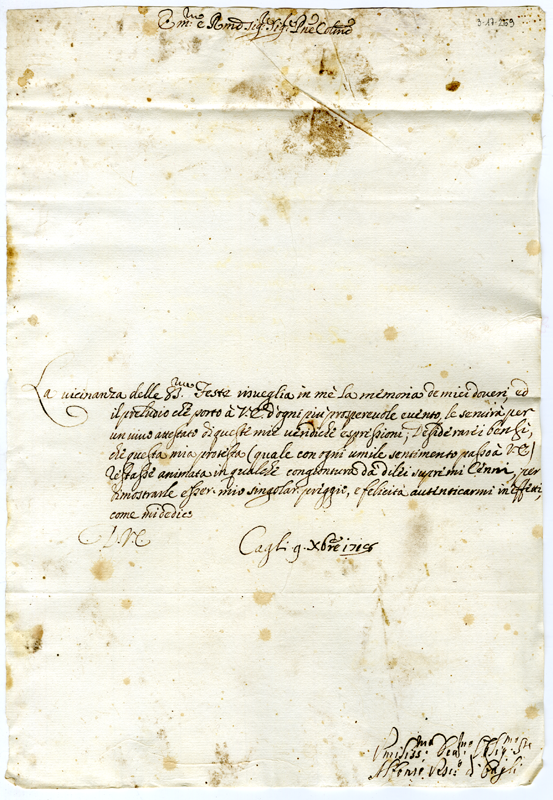 Em.mo e Rmo Sig.r Sig.r Pne Colmo
3-17-259
La vicinanza delle SS.me Feste risveglia in mè la memoria de miei doveri ed
il preludio che porto à V.E. d'ogni più prosperevole evento, le servirà per
un vivo attestato di queste mie veridiche espressioni; Desiderarei bensi,
che questa mia protesta (quale con ogni umile sentimento passo à V.E.)
restasse animata in qualche congontura da di lei supremi Cenni, per
dimostrarle esser mio singolar preggio, e felicità autenticarmi in effetti,
come mi dedico
D. V. E.
Cagli 9. Xbre
Umiliss.mo
Alfonso Vesc.o di Cagli